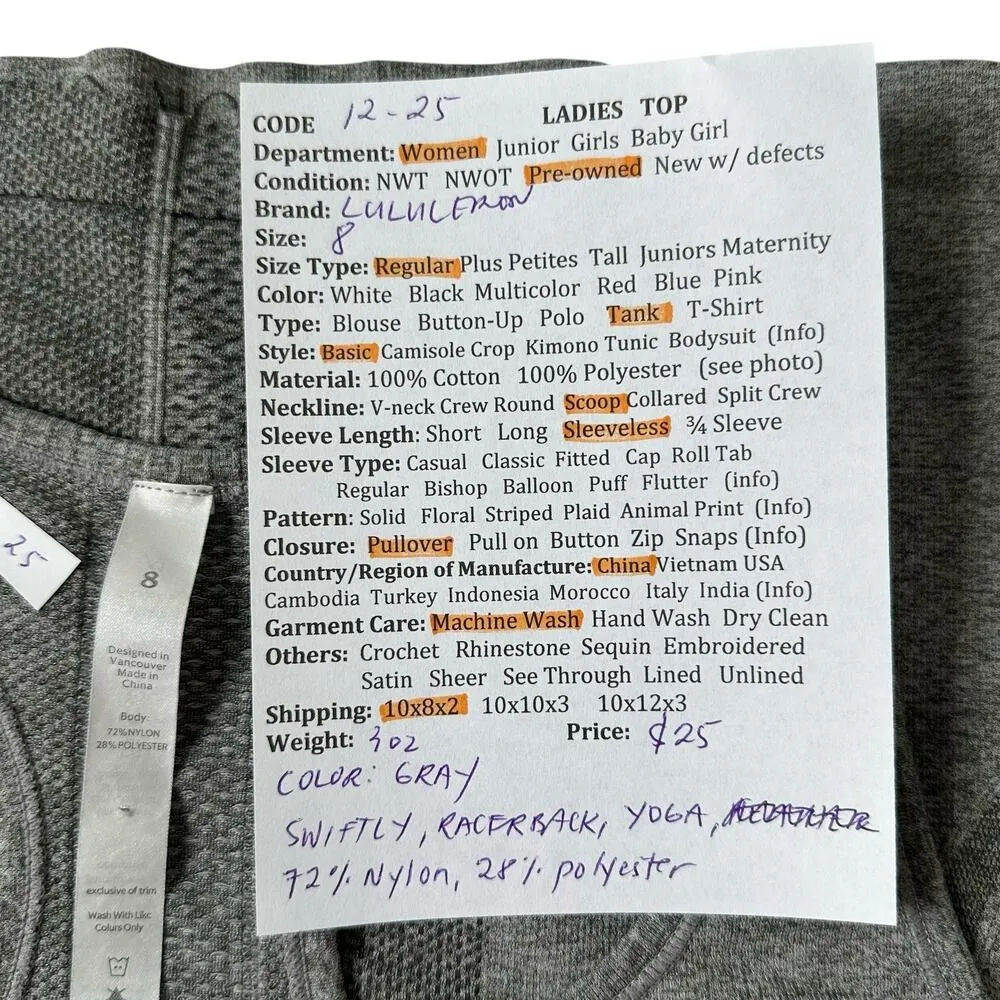 CODE 12-25 LADIES TOP
Department: Women Junior Girls Baby Girl
Condition: NWT NWOT Pre-owned New w/ defects
Brand: LULULEMON
Size: 8
Size Type: Regular Plus Petites Tall Juniors Maternity
Color: White Black Multicolor Red Blue Pink
Type: Blouse Button-Up Polo Tank T-Shirt
Style: Basic Camisole Crop Kimono Tunic Bodysuit (Info)
Material: 100% Cotton 100% Polyester (see photo)
Neckline: V-neck Crew Round Scoop Collared Split Crew
Sleeve Length: Short Long Sleeveless ¾ Sleeve
Sleeve Type: Casual Classic Fitted Cap Roll Tab
Regular Bishop Balloon Puff Flutter (info)
Pattern: Solid Floral Striped Plaid Animal Print (Info)
Closure: Pullover Pull on Button Zip Snaps (Info)
Country/Region of Manufacture: China Vietnam USA
Cambodia Turkey Indonesia Morocco Italy India (Info)
Garment Care: Machine Wash Hand Wash Dry Clean
Others: Crochet Rhinestone Sequin Embroidered
Satin Sheer See Through Lined Unlined
Shipping: 10x8x2 10x10x3 10x12x3
Weight: 3 oz Price: $25
COLOR: GRAY
SWIFTLY, RACERBACK, YOGA,
72% Nylon, 28% polyester
25
8
Designed in
Vancouver
Made in
China
Body:
72% NYLON
28% POLYESTER
exclusive of trim
Wash With Like
Colurs Only